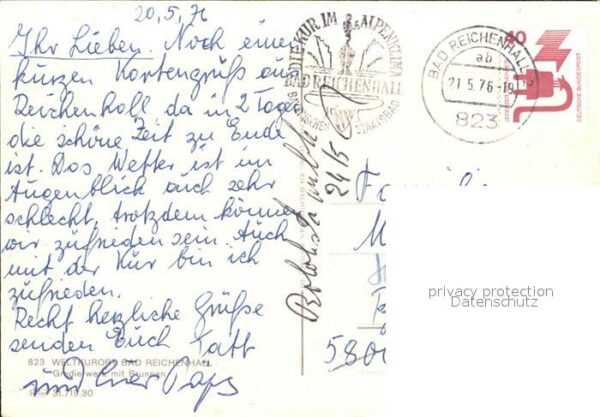 20.5.76
Ihr Lieben. Noch einen
kurzen Kartengruß aus
Reichenhall da in 2 Tagen
die schöne Zeit zu Ende
ist. Das Wetter ist im
Augenblick auch sehr
schlecht, trotzdem können
wir zufrieden sein. Auch
mit der Kur bin ich
zufrieden.
Recht herzliche Grüße
senden Euch
und Euer Paps
823 WELTKURORT BAD REICHENHALL
Gradierwerk mit Brunnen
31.719.30
DIE KUR IM ALPENKLIMA
BAD REICHENHALL
BAYERISCHES STAATSBAD
BAD REICHENHALL 2
ab
21.5.76-19
823
40
JEDERZEIT SICHERHEIT
DEUTSCHE BUNDESPOST
24/5
Famili
M
580
privacy protection
Datenschutz